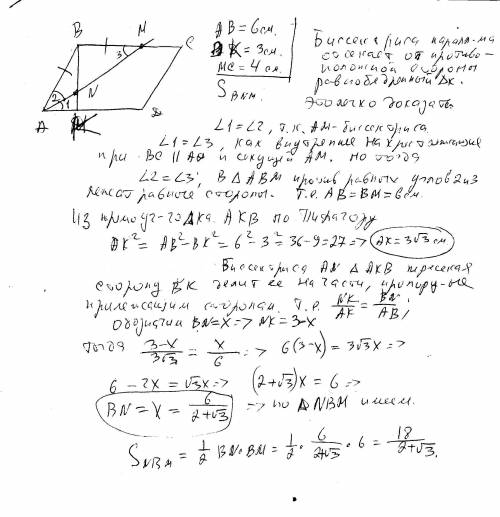 B M C
3
N
2 1
A K D
AB = 6 см.
BK = 3 см.
MC = 4 см.
S_BNM.
Биссектриса паралл-ма
отсекает от противо-
положной стороны
равнобедренный Δк.
Это легко доказать
∠1=∠2, т.к. AM-биссектриса
∠1=∠3, как внутренние накрест лежащие
при BC || AD и секущей AM. но тогда
∠2=∠3; В Δ ABM против равных углов 2и3
лежат равные стороны. Т.е. AB=BM=6см.
Из прямоуг-го Δка. AKB по Пифагору
AK²= AB²-BK²= 6²-3²= 36-9=27 => AK=3√3 см
Биссектриса AN Δ AKB пересекая
сторону BK делит ее на части, пропорц-ые
прилежащим сторонам. Т.е. NK/AK = BN/AB;
Обозначим BN=x => NK=3-x
тогда (3-x)/(3√3) = x/6 => 6(3-x) = 3√3x =>
6-2x = √3x => (2+√3)x = 6 =>
BN = x = 6/(2+√3) => по Δ NBM имеем.
S_NBM = 1/2 BN·BM = 1/2 · 6/(2+√3) · 6 = 18/(2+√3).